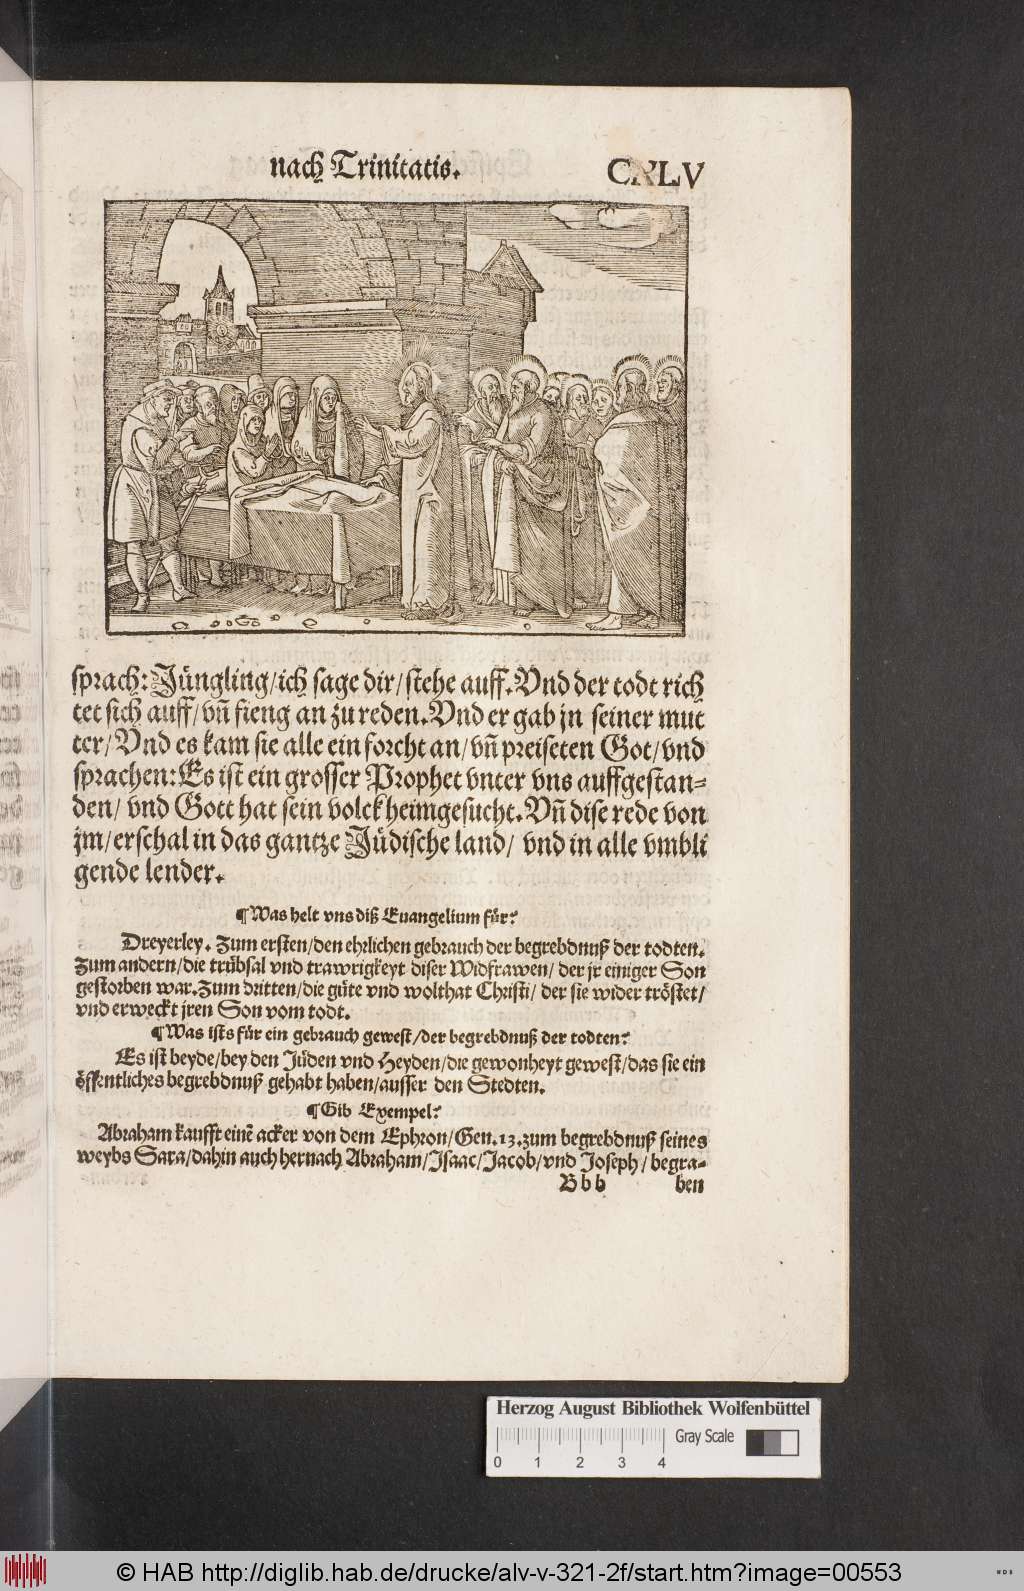 nach Trinitatis.
CXLV
sprach: Jüngling/ich sage dir/stehe auff. Vnd der todt rich
tet sich auff/vñ fieng an zu reden. Vnd er gab jn seiner mut
ter/Vnd es kam sie alle ein forcht an/vñ preiseten Got/vnd
sprachen: Es ist ein grosser Prophet vnter vns auffgestan=
den/ vnd Gott hat sein volck heimgesucht. Vñ dise rede von
jm/erschal in das gantze Jüdische land/ vnd in alle vmbli
gende lender.
¶Was helt vns diß Euangelium für?
Dreyerley. Zum ersten/den ehrlichen gebrauch der begrebdnuß der todten.
Zum andern/die trübsal vnd trawrigkeyt diser Widfrawen/ der jr einiger Son
gestorben war. Zum dritten/die güte vnd wolthat Christi/ der sie wider tröstet/
vnd erweckt jren Son vom todt.
¶Was ists für ein gebrauch gewest/der begrebdnuß der todten?
Es ist beyde/bey den Jüden vnd Heyden/die gewonheyt gewest/das sie ein
öffentliches begrebdnuß gehabt haben/ausser den Stedten.
¶Gib Exempel?
Abraham kaufft einẽ acker von dem Ephron/Gen. 13. zum begrebdnuß seines
weybs Sara/dahin auch hernach Abraham/Isaac/Jacob/vnd Joseph/ begra=
B b b ben
Herzog August Bibliothek Wolfenbüttel
Gray Scale
0 1 2 3 4
© HAB http://diglib.hab.de/drucke/alv-v-321-2f/start.htm?image=00553